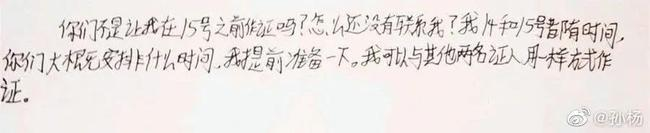 你们不是让我在15号之前作证吗?怎么还没有联系我?我14和15号都有时间,
你们大概安排什么时间,我提前准备一下。我可以与其他两名证人用一样方式作
证。
@孙杨